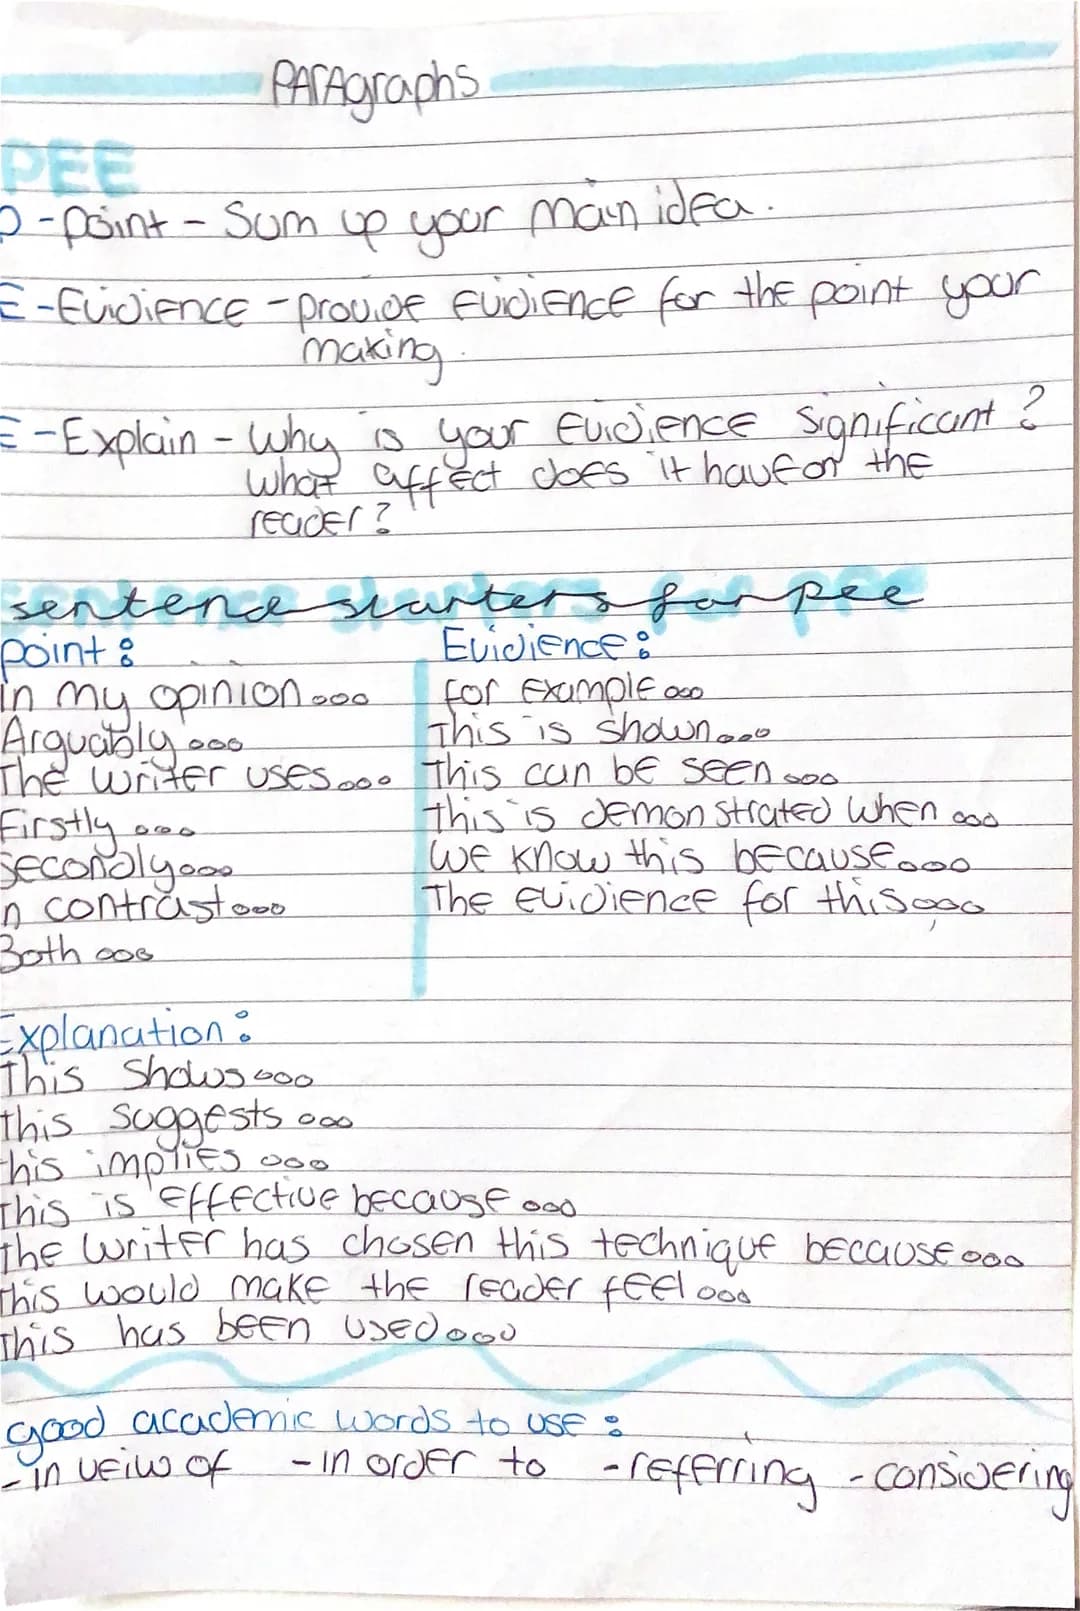 PARAgraphs
PEE
P - Point - Sum up your main idea.
E - Evidience - provide evidience for the point your
making.
E - Explain - Why is your Evidience significant?
What affect does it have on the
reader?
sentence starters for pee
point:
In my opinion...
Arguably...
The writer uses...
Firstly...
Secondly...
In contrast...
Both...
Evidience:
for Example...
This is shown...
This can be seen...
this is demonstrated when...
We know this because...
The evidience for this...
Explanation:
This shows...
this suggests...
this implies...
This is effective because...
the writer has chosen this technique because...
this would make the reader feel...
This has been used...
good academic words to use:
- in veiw of - in order to - referring - considering